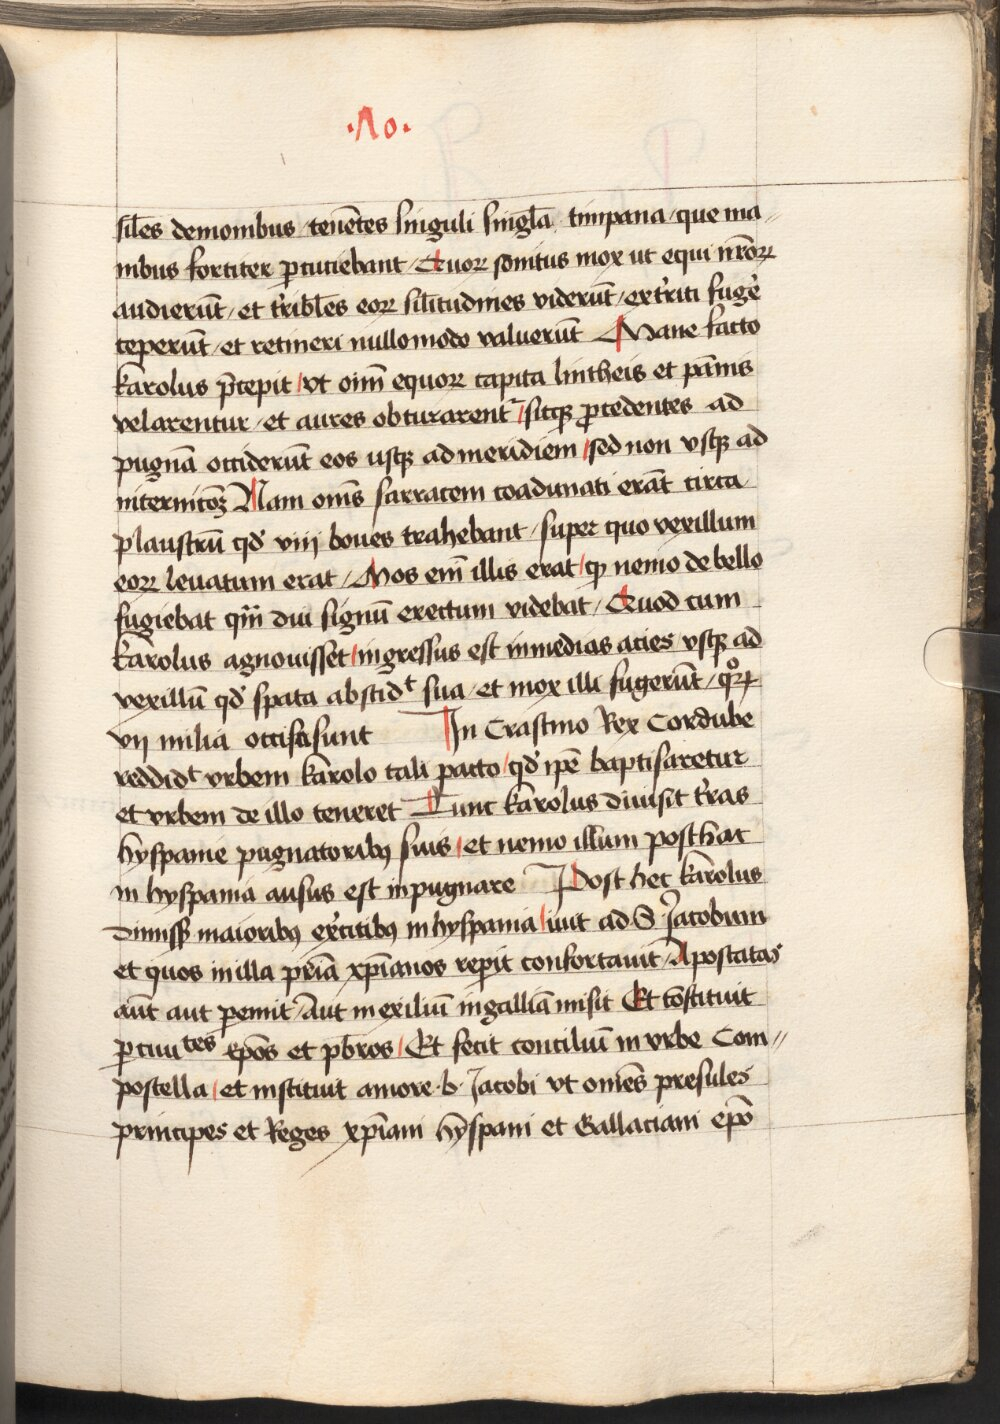 ·10·
sil̄es demonibus / tenētes singuli singl̄a timpana / que ma„
nibus fortiter ꝑcutiebant / Quoꝝ sonitus mox ut equi nr̄oꝝ
audierūt / et t̓ribl̄es eoꝝ sil̄itudines viderūt / ext̓riti fug̓e
ceperūt / et retineri nullomodo valuerūt Mane facto
karolus p̄cepit / vt oīm equoꝝ capita lintheis et pānis
velarentur / et aures obturarent᷑ / sicqꝫ ꝓcedentes ad
pugnā occiderūt eos usqꝫ ad meridiem / sed non vsqꝫ ad
internitōꝫ Nam om̄s sarraceni coadunati erāt circa
plaustrū qd̓ viii boues trahebant / super quo vexillum
eoꝝ leuatum erat / Mos em̄ illis erat / ꝙ nemo de bello
fugiebat qm̄ diu signū erectum videbat / Quod cum
karolus agnouisset / ingressus est in medias acies vsqꝫ ad
vexillū qd̓ spata abscidᵗ sua / et mox illi fugerūt / qͦꝝ
vii milia occisa sunt In Crastino Rex Cordube
reddidᵗ vrbem karolo tali pacto / qd̓ ip̄e baptisaretur
et vrbem de illo teneret Tunc karolus diuisit t̓ras
hyspanie pugnatoribꝰ suis / et nemo illum posthac
in hyspania ausus est inpugnare Post hec karolus
dimissꝭ maioribꝰ ex̓citibꝰ in hyspania / iuit ad S. Jacobum
et quos in illa pr̄ia xp̄ianos repperit confortauit / Apostatas
aūt aut ꝑemit / Aut in exiliū in galliā misit Et cōstituit
ꝑ ciuitᵉˢ ep̄os et pb̄ros / Et fecit conciliū in vrbe Com„
postella / et instituit amore · b · Jacobi vt om̄es presules
principes et Reges xp̄iani hyspani et Gallaciani ep̄o